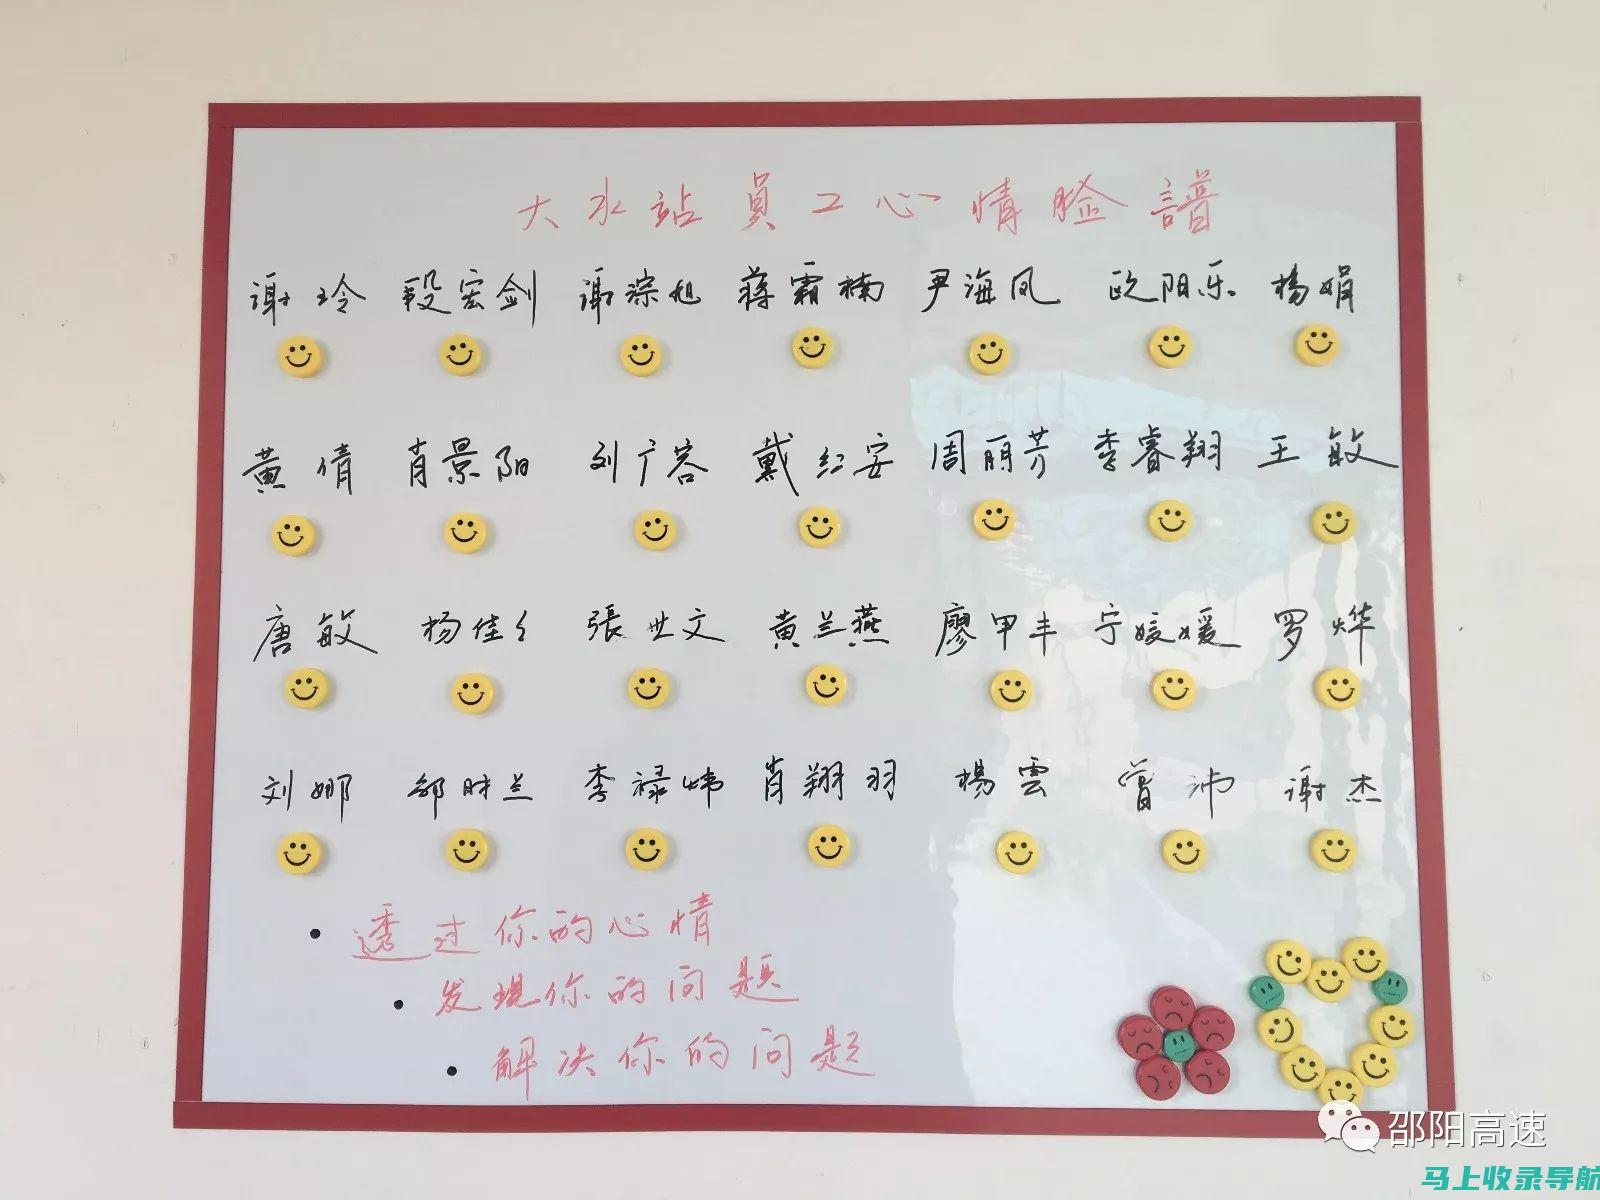 大水站員工心情脸譜
谢玲 段宏剑 谢淙旭 蒋霜楠 尹海凤 欧阳乐 杨娟
黄倩 肖景阳 刘广容 戴红安 周丽芳 李睿翔 王敏
唐敏 杨佳 張世文 黄兰燕 廖甲丰 宁媛媛 罗烨
刘娜 邹时兰 李禄炜 肖翔羽 楊雲 曾沛 谢杰
• 透过你的心情
• 发現你的问题
• 解决你的问题
邵阳高速
马上收录导航